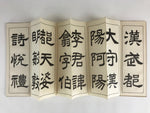 漢武都
大守漢
陽阿陽
李君諱
翕字伯
都天姿
明敏敦
詩悅禮